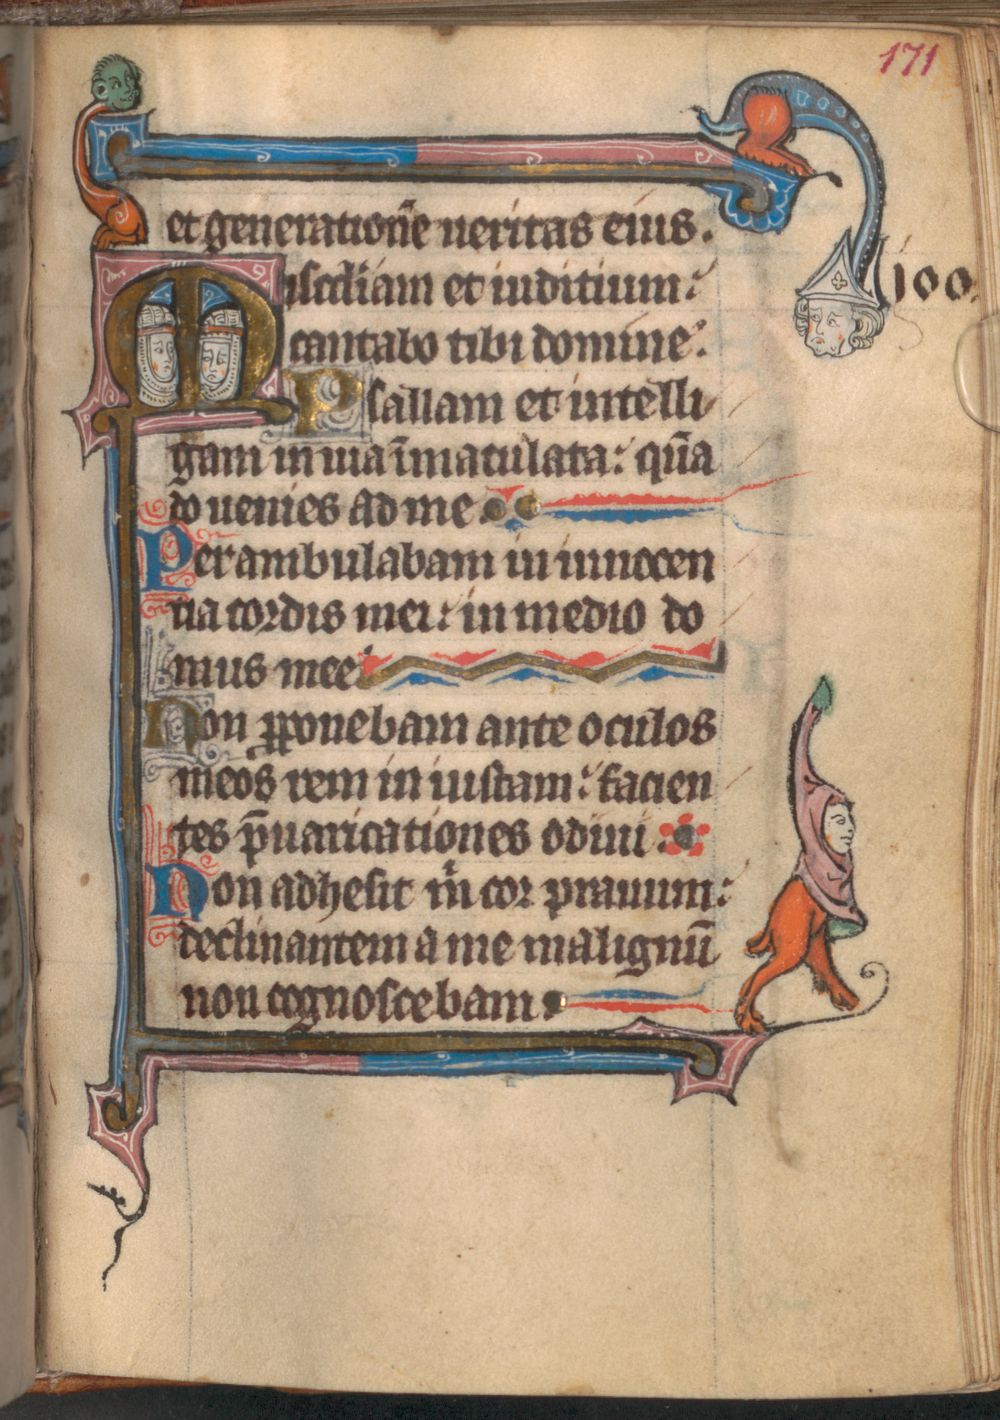 171
et generatiōne ueritas eius.
Misericordiam et iuditium:
100.
cantabo tibi domine.
Psallam et intelli
gam in uia īmaculata: quā
do uenies ad me
Perambulabam in innocen
tia cordis mei: in medio do
mus mee
Non proponebam ante oculos
meos rem in iustam: facien
tes p̄uaricationes odiui.
Non adhesit m̄ cor prauum:
declinantem a me malignū
non cognoscebam